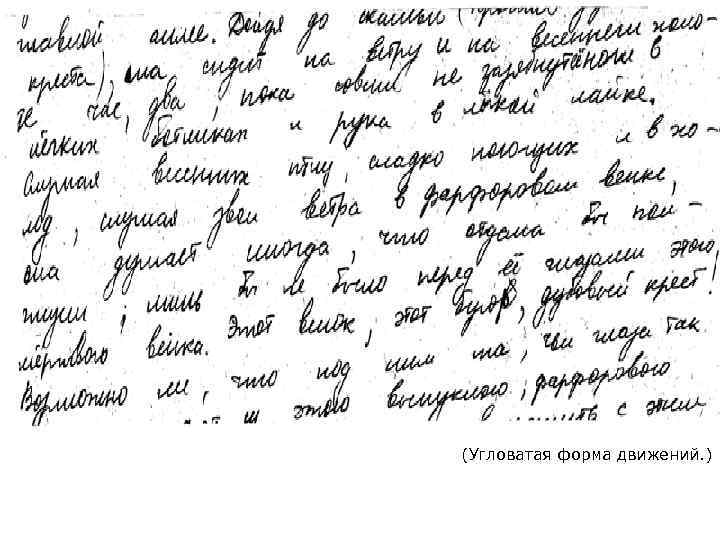 главной аллее. Дойдя до скамьи (против
креста), она сидит на ветру и на весеннем холо-
де час, два, пока совсем не зазябнут её ноги в
лёгких ботинках и рука в лёгкой лайке.
Слушая весенних птиц, сладко поющих и в хо-
лод, слушая звон ветра в фарфоровом венке,
она думает иногда, что отдала бы пол-
жизни, лишь бы не было перед её глазами этого
мёртвого венка. Этот венок, этот бугор, дубовый крест!
Возможно ли, что под ним та, чьи глаза так
из этого выпуклого, фарфорового
с этим
(Угловатая форма движений.)